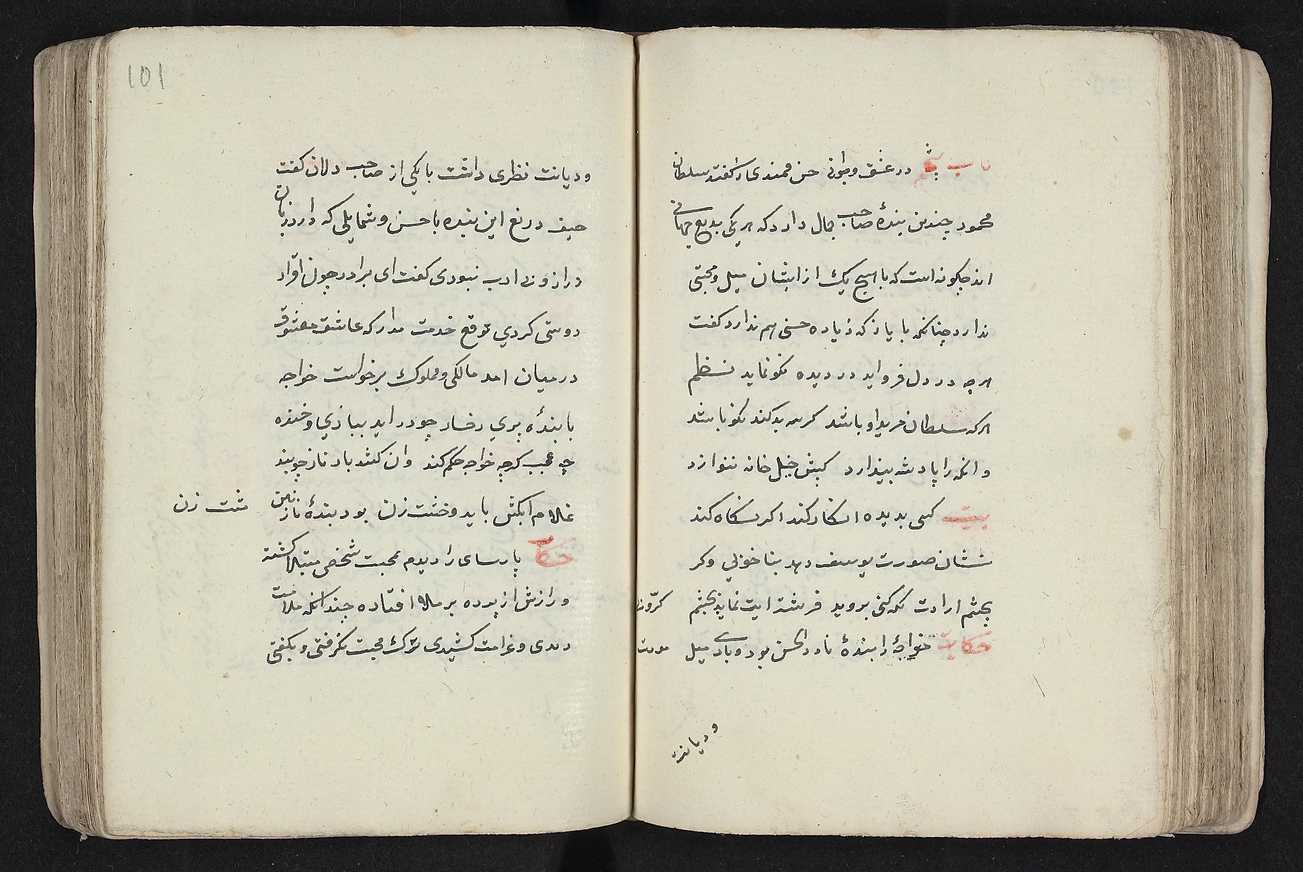 باب پنجم در عشق و جوانی حسن میمندی را گفتند سلطان
محمود چندین بندهٔ صاحب جمال دارد که هر یکی بدیع جهانی
اند چگونه است که با هیچ یک از ایشان میل و محبتی
ندارد چنانکه با یاز که زیاده حسنی هم ندارد گفت
هرچه در دل فرو اید در دیده نکو نماید نظم
هر که سلطان مرید او باشد کر همه بد کند نکو باشد
وانکه را پادشه بیندازد کسش خیل خانه ننوازد
بیت کسی بدیده انکار کند اکر نکاه کند
نشان صورت یوسف دهد بنا خوبی وکر
بچشم ارادت نکه کنی بر دیو فرشته ایت نماید بچشم کروبی
حکایت خواجهٔ را بندهٔ نادر الحسن بود و با وی میل مودت
و دیانت
101
و دیانت نظری داشت با یکی از صاحب دلان گفت
حیف دریغ این بنده با حسن و شمایلی که دارد زبان
دراز و بی ادب نبودی گفت ای برادر چون اقرار
دوستی کردی توقع خدمت مدار که عاشق معشوقی
در میان امد مالکی و مملوک برخواست خواجه
با بندهٔ پری رخسار چو در اید ببازی و خنده
چه عجب کر چه خواجه حکم کند وان کشد بار ناز چو بنده
غلام ابکش باید و خشت زن بود بندهٔ نازنین مشت زن
حکایت پارسای را دیدم محبت شخصی مبتلا کشته
و رازش از پرده بر ملا افتاده چندانکه ملامت
دیدی و غرامت کشیدی ترک محبت نکرفتی و بکفتی